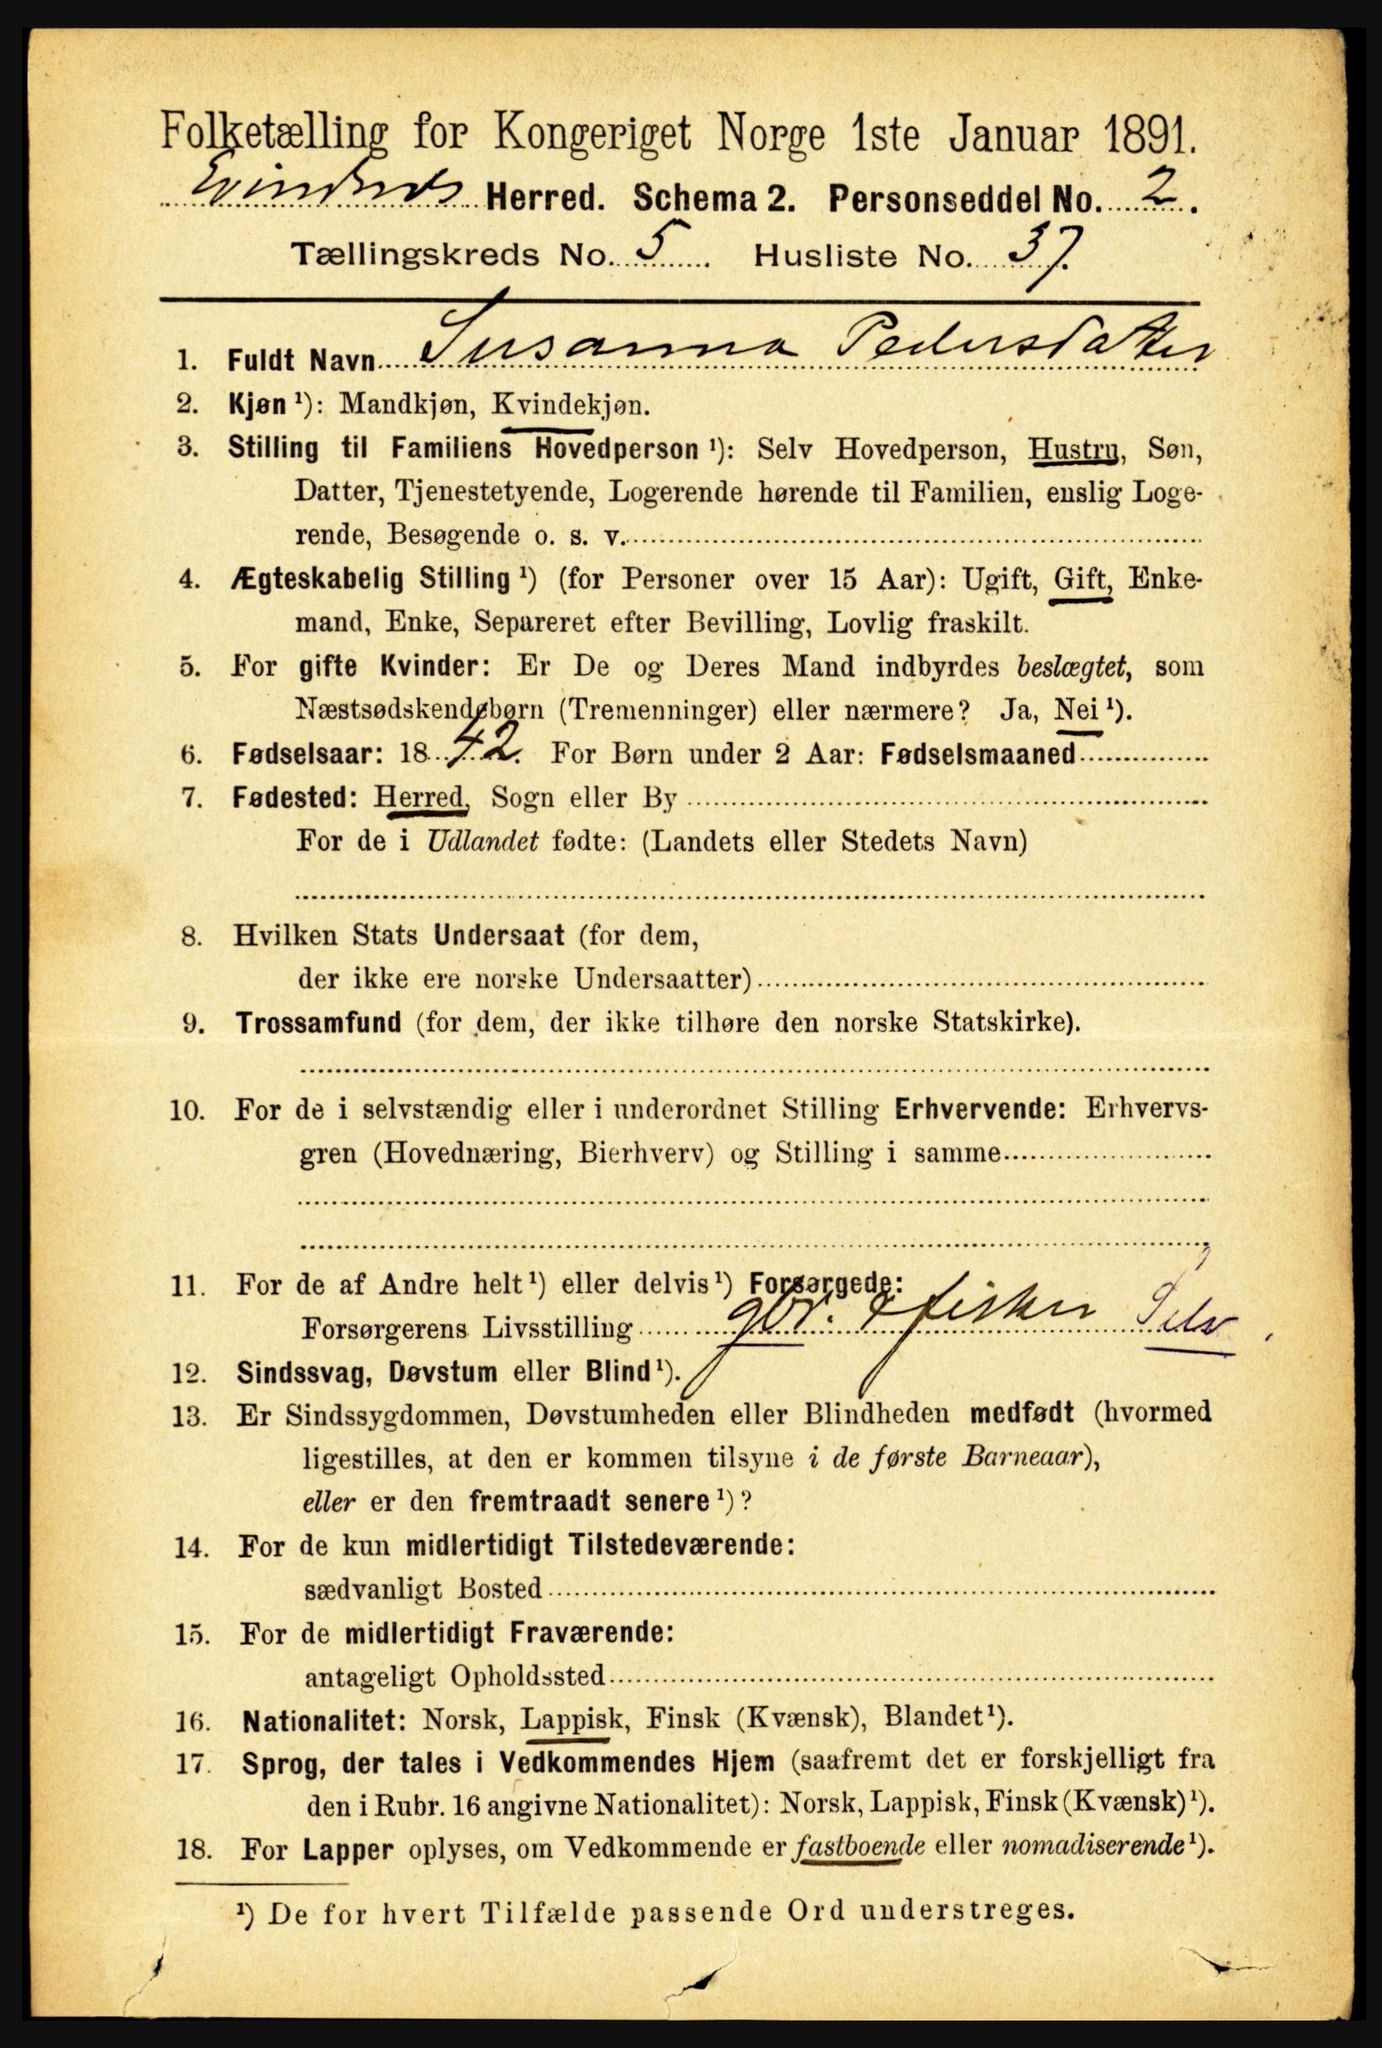 Folketælling for Kongeriget Norge 1ste Januar 1891.
Evindnes Herred. Schema 2. Personseddel No. 2.
Tællingskreds No. 5 Husliste No. 37.
1. Fuldt Navn Susanna Pedersdatter
2. Kjøn ¹): Mandkjøn, Kvindekjøn.
3. Stilling til Familiens Hovedperson ¹): Selv Hovedperson, Hustru, Søn,
Datter, Tjenestetyende, Logerende hørende til Familien, enslig Loge-
rende, Besøgende o. s. v.
4. Ægteskabelig Stilling ¹) (for Personer over 15 Aar): Ugift, Gift, Enke-
mand, Enke, Separeret efter Bevilling, Lovlig fraskilt.
5. For gifte Kvinder: Er De og Deres Mand indbyrdes beslægtet, som
Næstsødskendebørn (Tremenninger) eller nærmere? Ja, Nei ¹).
6. Fødselsaar: 1842. For Børn under 2 Aar: Fødselsmaaned
7. Fødested: Herred, Sogn eller By
For de i Udlandet fødte: (Landets eller Stedets Navn)
8. Hvilken Stats Undersaat (for dem,
der ikke ere norske Undersaatter)
9. Trossamfund (for dem, der ikke tilhøre den norske Statskirke).
10. For de i selvstændig eller i underordnet Stilling Erhvervende: Erhvervs-
gren (Hovednæring, Bierhverv) og Stilling i samme
11. For de af Andre helt ¹) eller delvis ¹) Forsørgede:
Forsørgerens Livsstilling gbr. & fisker Selv
12. Sindssvag, Døvstum eller Blind ¹).
13. Er Sindssygdommen, Døvstumheden eller Blindheden medfødt (hvormed
ligestilles, at den er kommen tilsyne i de første Barneaar),
eller er den fremtraadt senere ¹)?
14. For de kun midlertidigt Tilstedeværende:
sædvanligt Bosted
15. For de midlertidigt Fraværende:
antageligt Opholdssted
16. Nationalitet: Norsk, Lappisk, Finsk (Kvænsk), Blandet ¹).
17. Sprog, der tales i Vedkommendes Hjem (saafremt det er forskjelligt fra
den i Rubr. 16 angivne Nationalitet): Norsk, Lappisk, Finsk (Kvænsk) ¹).
18. For Lapper oplyses, om Vedkommende er fastboende eller nomadiserende ¹).
¹) De for hvert Tilfælde passende Ord understreges.